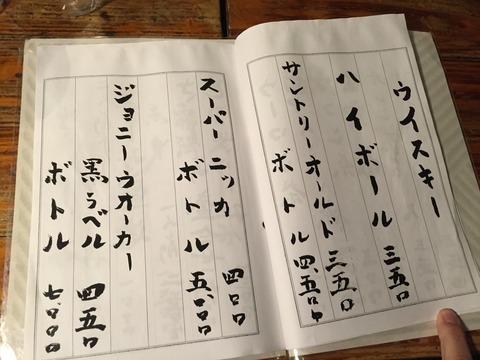 ウイスキー
ハイボール 三五〇
サントリーオールド 三五〇
ボトル 四、五〇〇
スーパーニッカ 四〇〇
ボトル 五、〇〇〇
ジョニーウオーカー
黒ラベル 四五〇
ボトル 七、〇〇〇